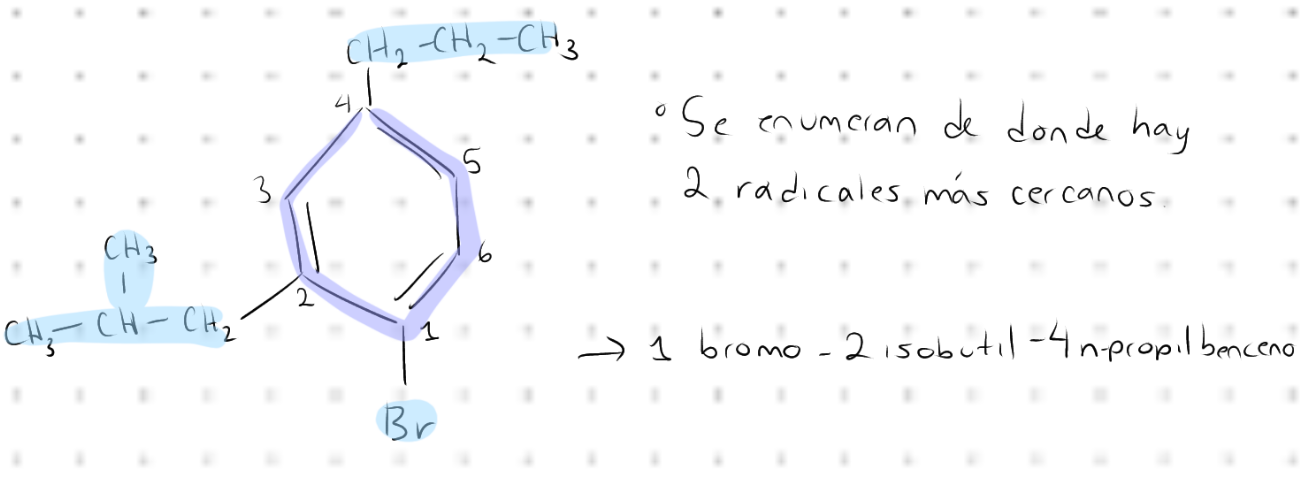 CH₂-CH₂-CH₃
4
5
3
6
CH₃
2
1
CH₃-CH-CH₂
Br
° Se enumeran de donde hay
2 radicales más cercanos.
→ 1 bromo - 2 isobutil - 4 n-propil benceno